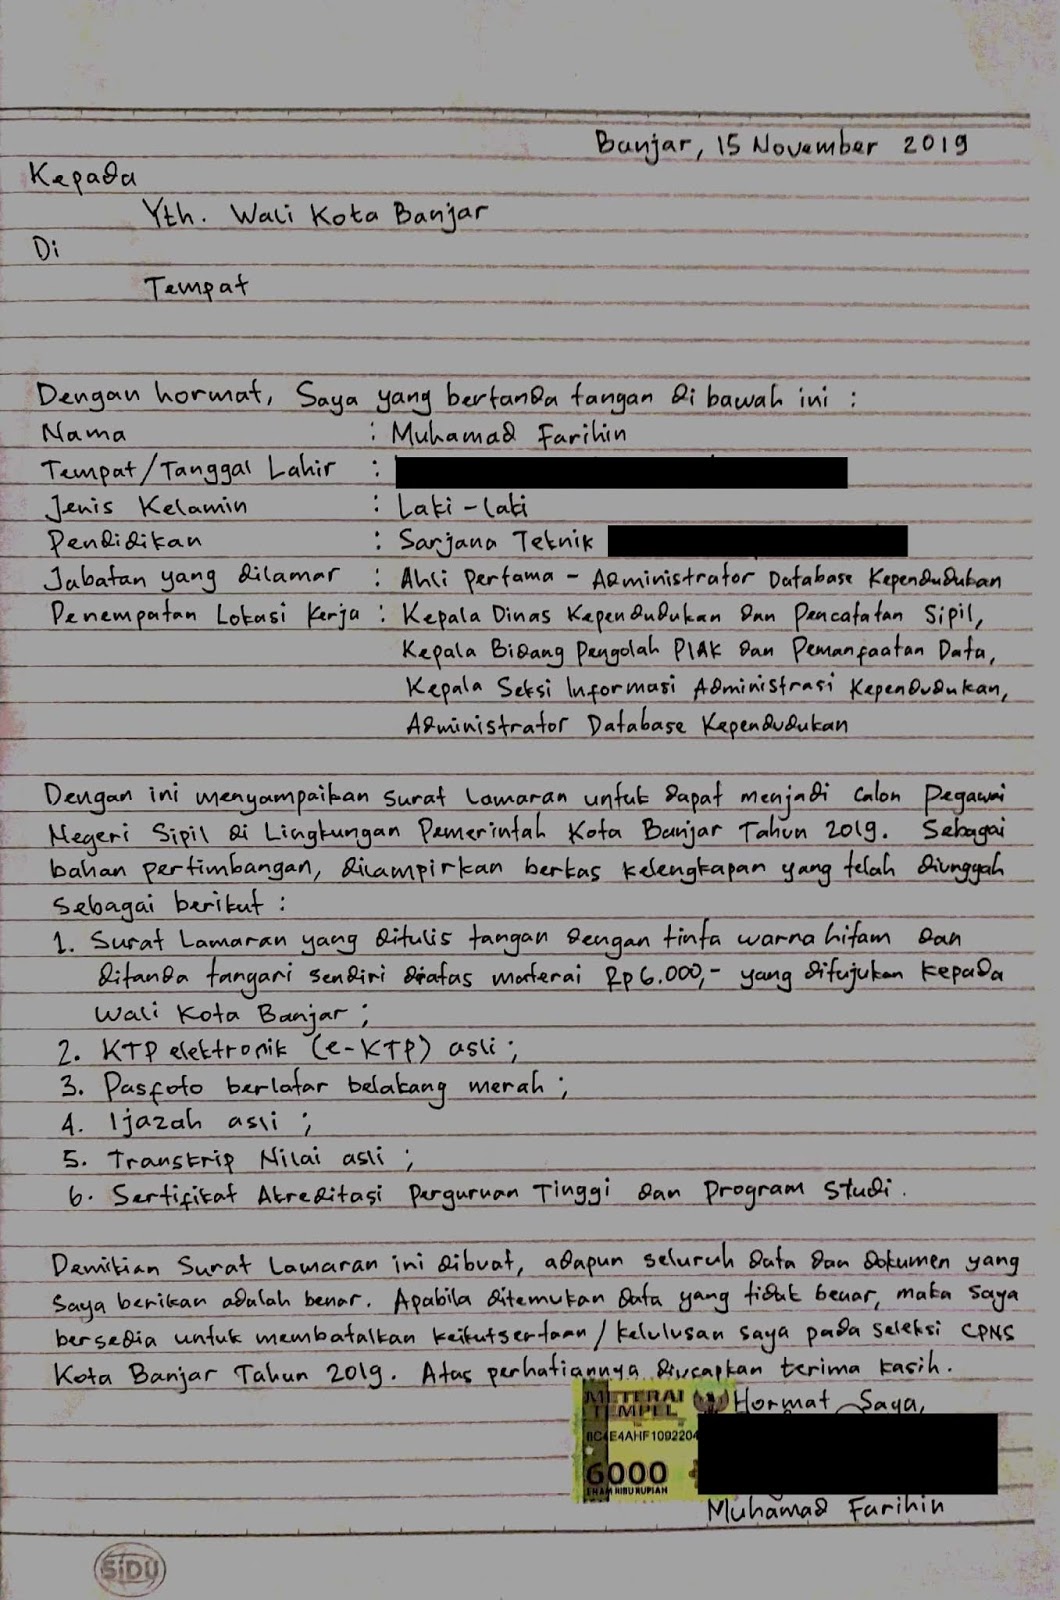 Banjar, 15 November 2019
Kepada
Yth. Wali Kota Banjar
Di
Tempat
Dengan hormat, Saya yang bertanda tangan di bawah ini :
Nama : Muhamad Farihin
Tempat/Tanggal Lahir :
Jenis Kelamin : Laki-laki
Pendidikan : Sarjana Teknik
Jabatan yang dilamar : Ahli Pertama - Administrator Database Kependudukan
Penempatan Lokasi Kerja : Kepala Dinas Kependudukan dan Pencatatan Sipil,
Kepala Bidang Pengolah PIAK dan Pemanfaatan Data,
Kepala Seksi Informasi Administrasi Kependudukan,
Administrator Database Kependudukan
Dengan ini menyampaikan surat lamaran untuk dapat menjadi Calon Pegawai
Negeri Sipil di Lingkungan Pemerintah Kota Banjar Tahun 2019. Sebagai
bahan pertimbangan, dilampirkan berkas kelengkapan yang telah diunggah
sebagai berikut :
1. Surat Lamaran yang ditulis tangan dengan tinta warna hitam dan
ditanda tangari sendiri diatas materai Rp6.000,- yang ditujukan kepada
Wali Kota Banjar ;
2. KTP elektronik (e-KTP) asli ;
3. Pasfoto berlatar belakang merah ;
4. Ijazah asli ;
5. Transkrip Nilai asli ;
6. Sertifikat Akreditasi Perguruan Tinggi dan Program Studi.
Demikian Surat Lamaran ini dibuat, adapun seluruh data dan dokumen yang
saya berikan adalah benar. Apabila ditemukan data yang tidak benar, maka saya
bersedia untuk membatalkan keikutsertaan/kelulusan saya pada seleksi CPNS
Kota Banjar Tahun 2019. Atas perhatiannya diucapkan terima kasih.
Hormat Saya,
METERAI
TEMPEL
6000
ENAM RIBU RUPIAH
Muhamad Farihin
SiDU